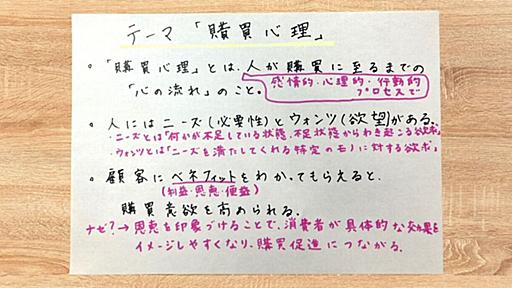 テーマ「購買心理」
。「購買心理」とは、人が購買に至るまでの
「心の流れ」のこと。
感情的・心理的・行動的
プロセスで
。人にはニーズ(必要性)とウォンツ(欲望)がある。
・ニーズとは「何かが不足している状態、不足状態からわき起こる欲求」
・ウォンツとは「ニーズを満たしてくれる特定のモノに対する欲求」
。顧客にベネフィットをわかってもらえると、
(利益・恩恵・便益)
購買意欲を高められる。
ナゼ?→恩恵を印象づけることで、消費者が具体的な効果を
イメージしやすくなり、購買促進につながる。